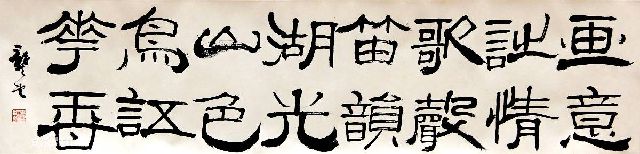 画意
詩情
歌聲
笛韻
湖光
山色
鳥語
華香